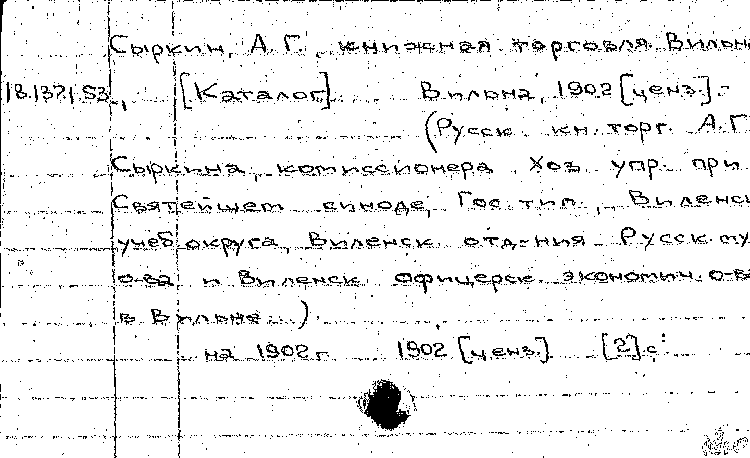 Сыркин, А.Г., книжная торговля. Вильн
18.137.1.53., [Каталог]. Вильна, 1902 [ценз.].-
(Русск. кн. торг. А.Г.
Сыркина, комиссионера Хоз. упр. при
Святейшем синоде, Гос. тип., Виленск
учеб. округа, Виленск. отд-ния Русск. му
о-ва и Виленск. офицерск. экономич. о-ва
в Вильне...)
на 1902 г. 1902 [ценз.]. [2] с.